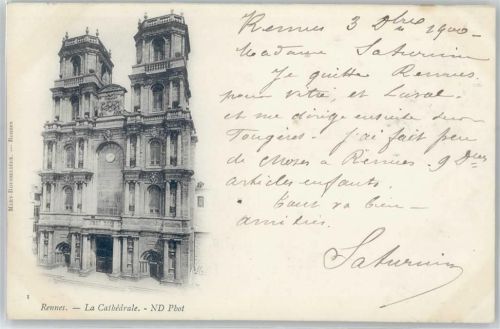 Rennes 3 Dbre 1900
Madame Saturnin
Je quitte Rennes
pour Vitré, et Laval
et me dirige ensuite
Fougères. J'ai fait peu
de choses à Rennes. 9 Dnes
articles enfants.
Tout va bien
amitiés.
Saturnin
MARY-ROUSSELIÈRE, — RENNES
1
Rennes. — La Cathédrale. - ND Phot